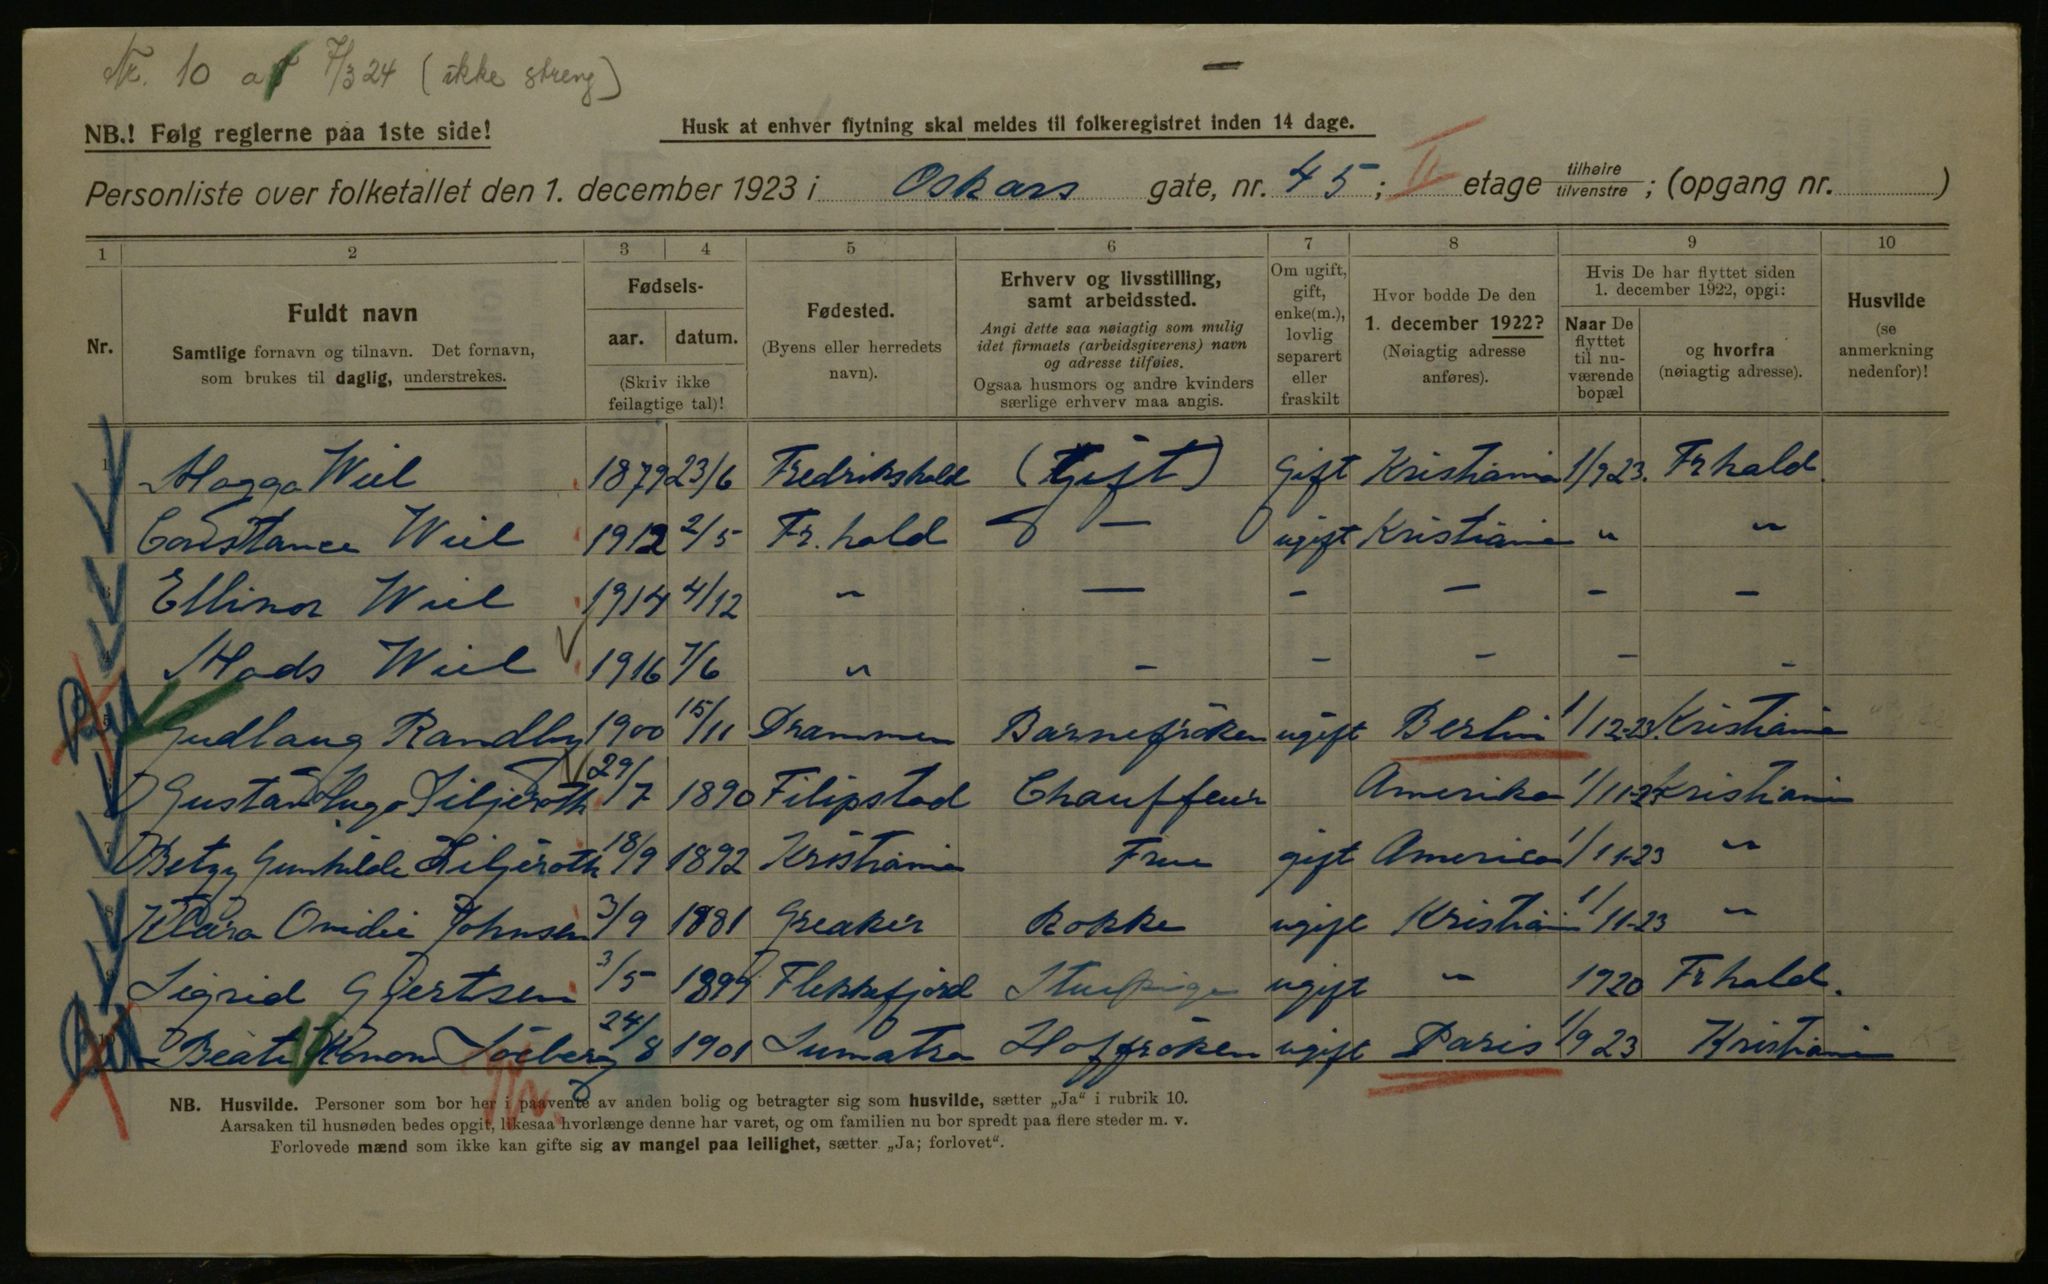 Nr. 10 af 7/3 24 (ikke streng)
NB.! Følg reglerne paa 1ste side!
Husk at enhver flytning skal meldes til folkeregistret inden 14 dage.
Personliste over folketallet den 1. december 1923 i Oskars gate, nr. 45; II etage tilhøire tilvenstre; (opgang nr. )
1 2 3 4 5 6 7 8 9 10
Nr.
Fuldt navn
Samtlige fornavn og tilnavn. Det fornavn,
som brukes til daglig, understrekes.
Fødsels-
aar. datum.
(Skriv ikke
feilagtige tal)!
Fødested.
(Byens eller herredets
navn).
Erhverv og livsstilling,
samt arbeidssted.
Angi dette saa nøiagtig som mulig
idet firmaets (arbeidsgiverens) navn
og adresse tilføies.
Ogsaa husmors og andre kvinders
særlige erhverv maa angis.
Om ugift,
gift,
enke(m.),
lovlig
separert
eller
fraskilt
Hvor bodde De den
1. december 1922?
(Nøiagtig adresse
anføres).
Hvis De har flyttet siden
1. december 1922, opgi:
Naar De
flyttet
til nu-
værende
bopæl
og hvorfra
(nøiagtig adresse).
Husvilde
(se
anmerkning
nedenfor)!
1 Magga Wiel 1879 23/6 Fredrikshald (Gift) Gift Kristiania 1/9 23. Frhald.
Constance Wiel 1912 2/5 Fr. hald — ugift Kristiania " "
Ellinor Wiel 1914 4/12 " — - - - -
Mads Wiel 1916 7/6 " - - - - -
5 Gudlaug Randby 1900 15/11 Drammen Barnefröken ugift Berlin 1/12-23. Kristiania
Gustav Hugo Siljeroth 29/7 1890 Filipstad Chauffeur Amerika 1/11-23 Kristiania
7 Betzy Gunhilde Liljeroth 18/9 1892 Kristiania Frue gift America 1/11-23 "
8 Klara Ovidie Johnsen 3/9 1881 Greaker Kokke ugift Kristiania 1/11-23 "
9 Sigrid Gjertsen 3/5 1899 Flekkefjord Stuepige ugift " 1920 Frhald.
10 Beate Konow Söeberg 24/8 1901 Sumatra Hoffröken ugift Paris 1/9 23 Kristiania
NB. Husvilde. Personer som bor her i paavente av anden bolig og betragter sig som husvilde, sætter „Ja“ i rubrik 10.
Aarsaken til husnøden bedes opgit, likesaa hvorlænge denne har varet, og om familien nu bor spredt paa flere steder m. v.
Forlovede mænd som ikke kan gifte sig av mangel paa leilighet, sætter „Ja; forlovet“.